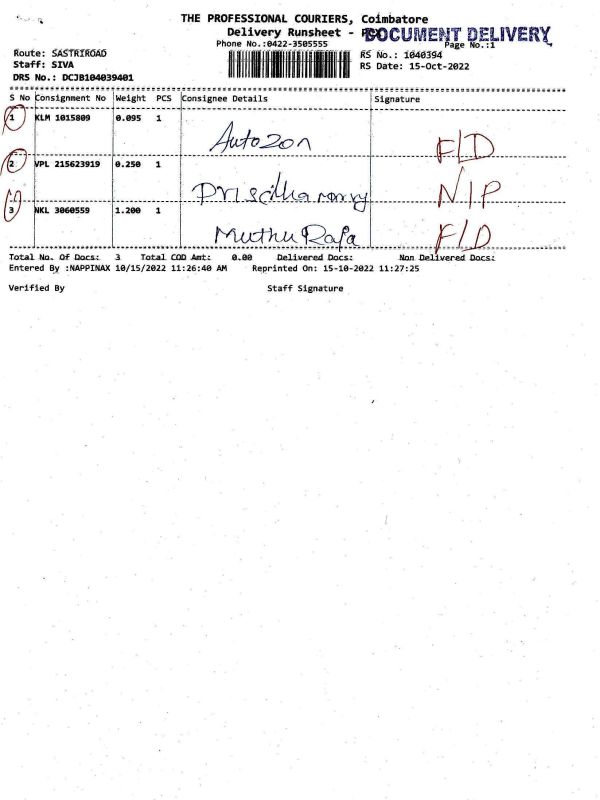 THE PROFESSIONAL COURIERS, Coimbatore
Delivery Runsheet -
DOCUMENT DELIVERY
Phone No.:0422-3505555
Page No.:1
Route: SASTRIROAD
RS No.: 1040394
Staff: SIVA
RS Date: 15-Oct-2022
DRS No.: DCJB104039401
S No Consignment No Weight PCS Consignee Details Signature
1 KLM 1015809 0.095 1
Autozon F/D
2 VPL 215623919 0.250 1
N/P
3 NKL 3060559 1.200 1
Muthu Raja F/D
Total No. Of Docs: 3 Total COD Amt: 0.00 Delivered Docs: Non Delivered Docs:
Entered By :NAPPINAX 10/15/2022 11:26:40 AM Reprinted On: 15-10-2022 11:27:25
Verified By Staff Signature